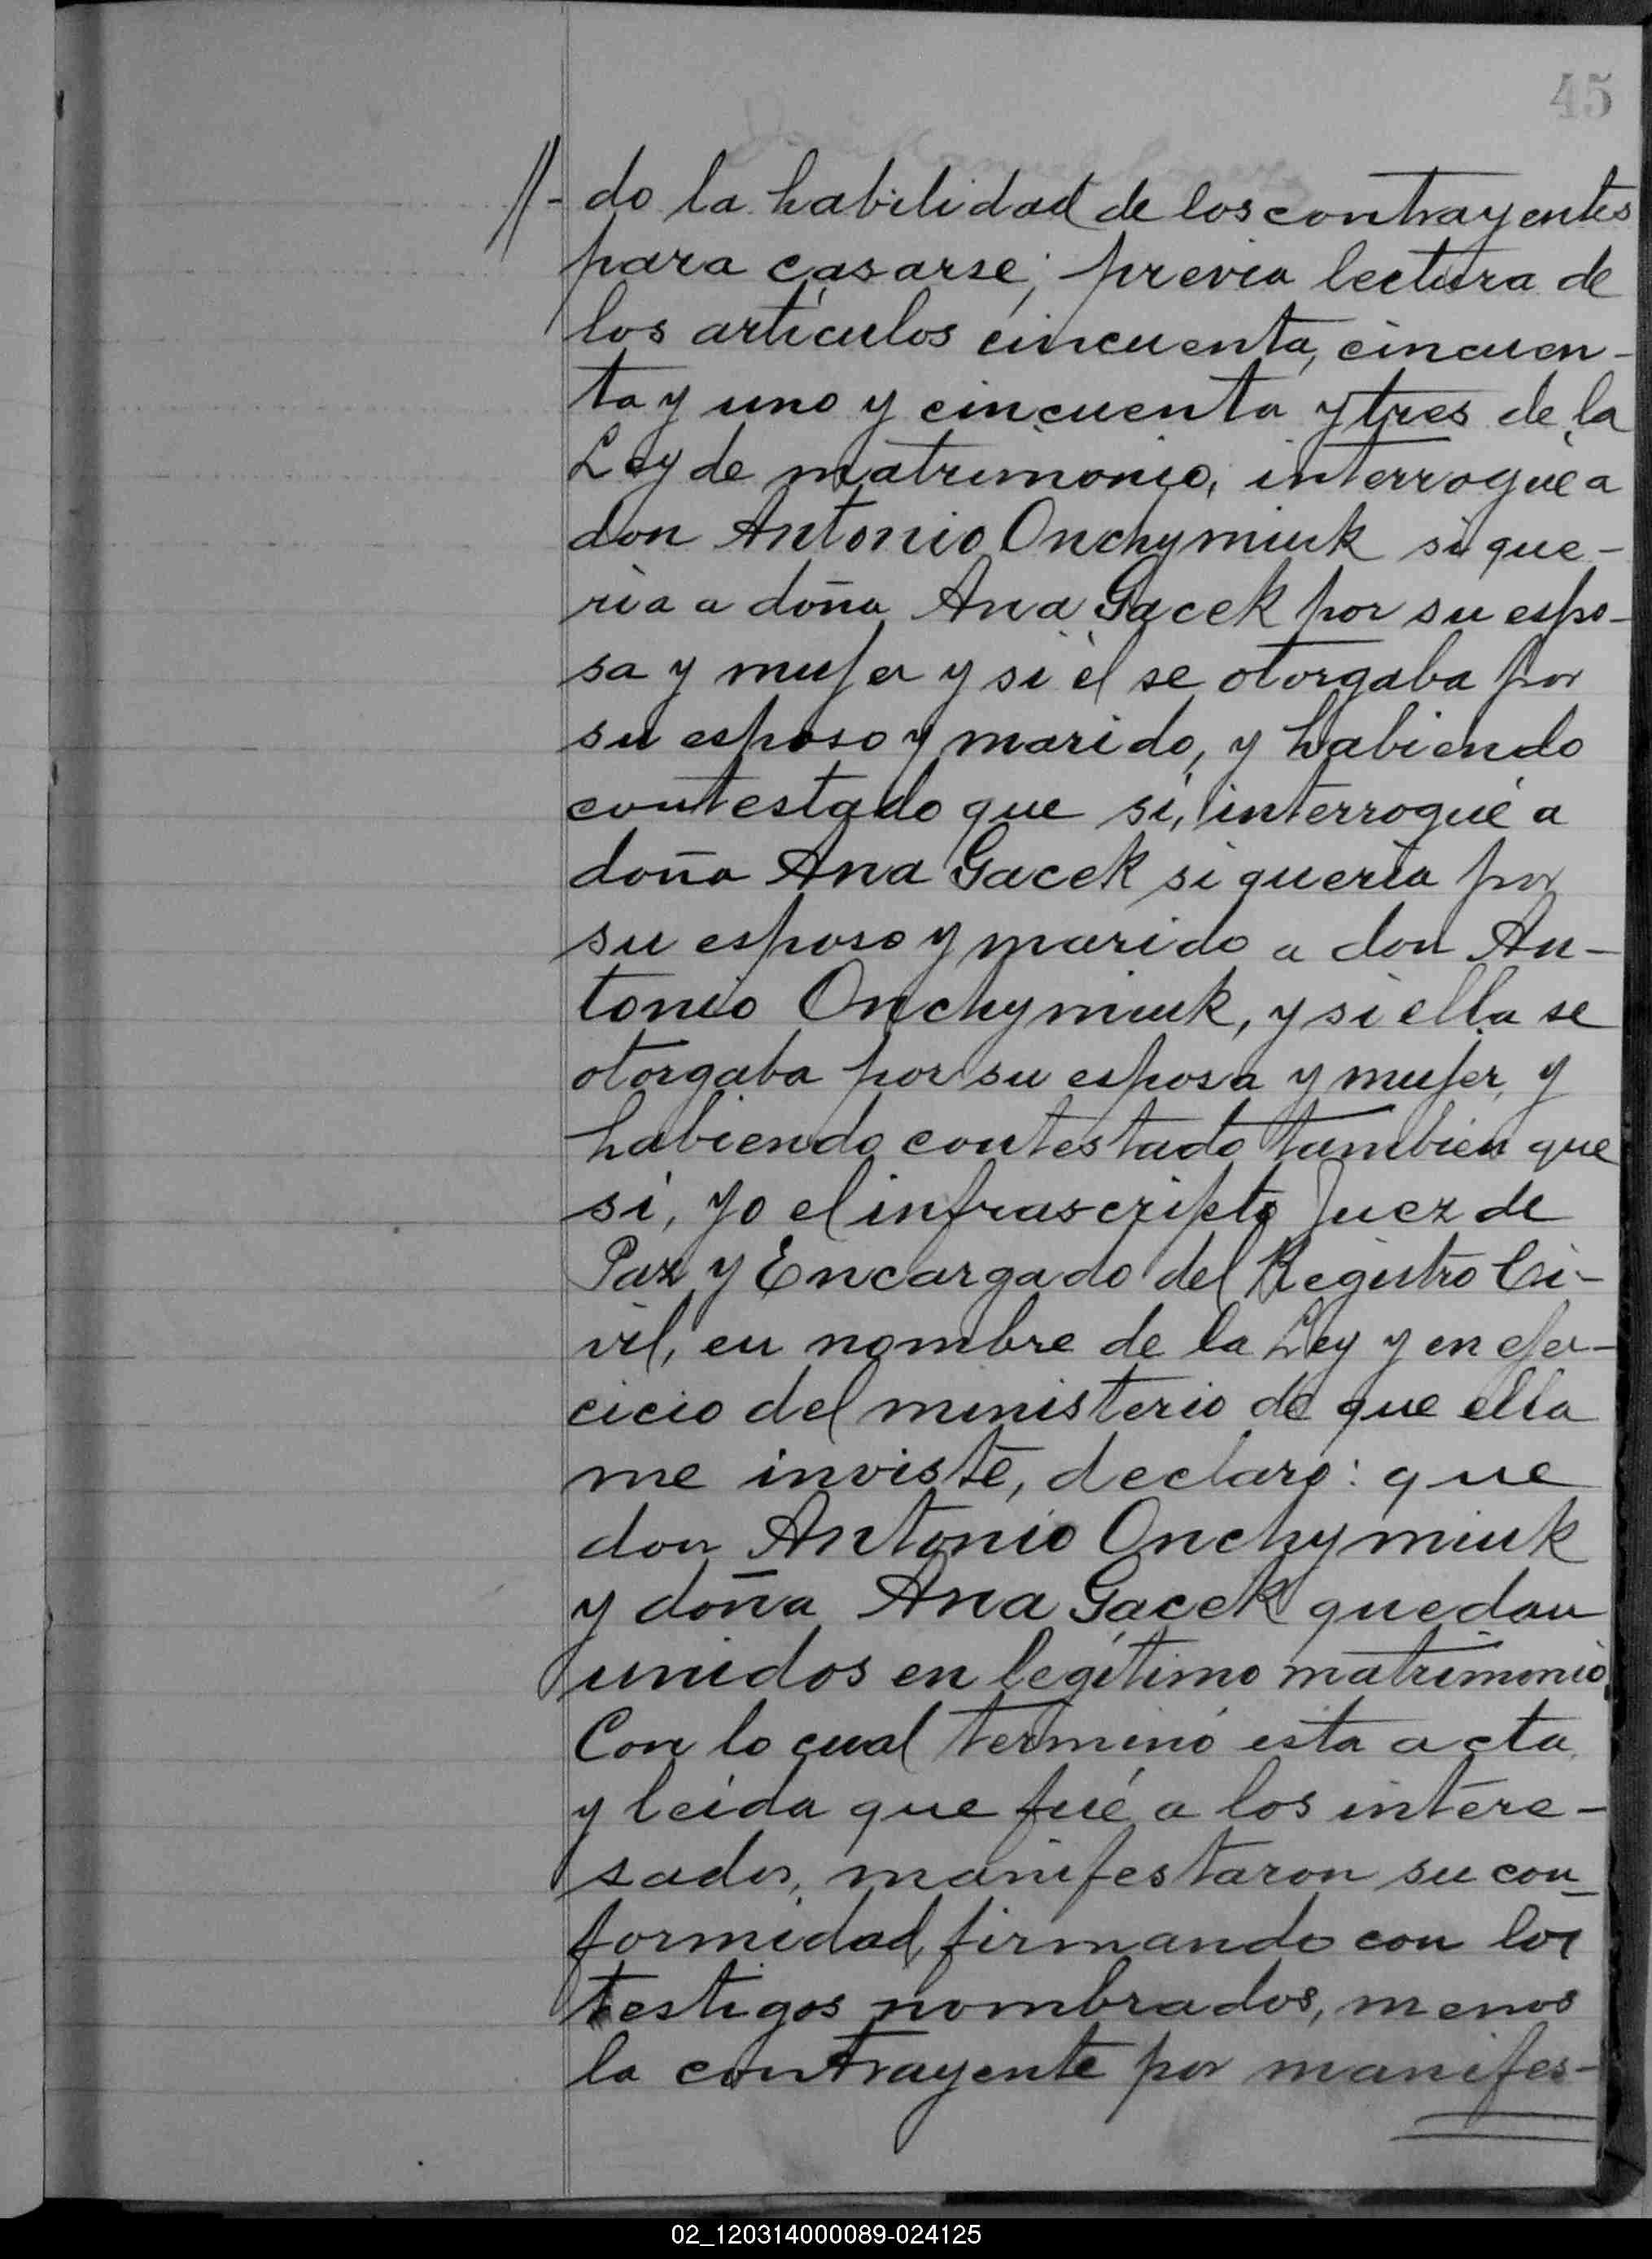 45
//- do la habilidad de los contrayentes
para casarse; previa lectura de
los artículos cincuenta, cincuen-
ta y uno y cincuenta y tres de la
Ley de matrimonio, interrogué a
don Antonio Onchymiuk si que-
ría a doña Ana Gacek por su espo-
sa y mujer y si él se otorgaba por
su esposo y marido, y habiendo
contestado que sí, interrogué a
doña Ana Gacek si quería por
su esposo y marido a don An-
tonio Onchymiuk, y si ella se
otorgaba por su esposa y mujer, y
habiendo contestado también que
sí, yo el infrascripto Juez de
Paz y Encargado del Registro Ci-
vil, en nombre de la Ley y en ejer-
cicio del ministerio de que ella
me inviste, declaro: que
don Antonio Onchymiuk
y doña Ana Gacek quedan
unidos en legítimo matrimonio.
Con lo cual terminó esta acta,
y leída que fué a los intere-
sados, manifestaron su con-
formidad, firmando con los
testigos nombrados, menos
la contrayente por manifes-
02_120314000089-024125